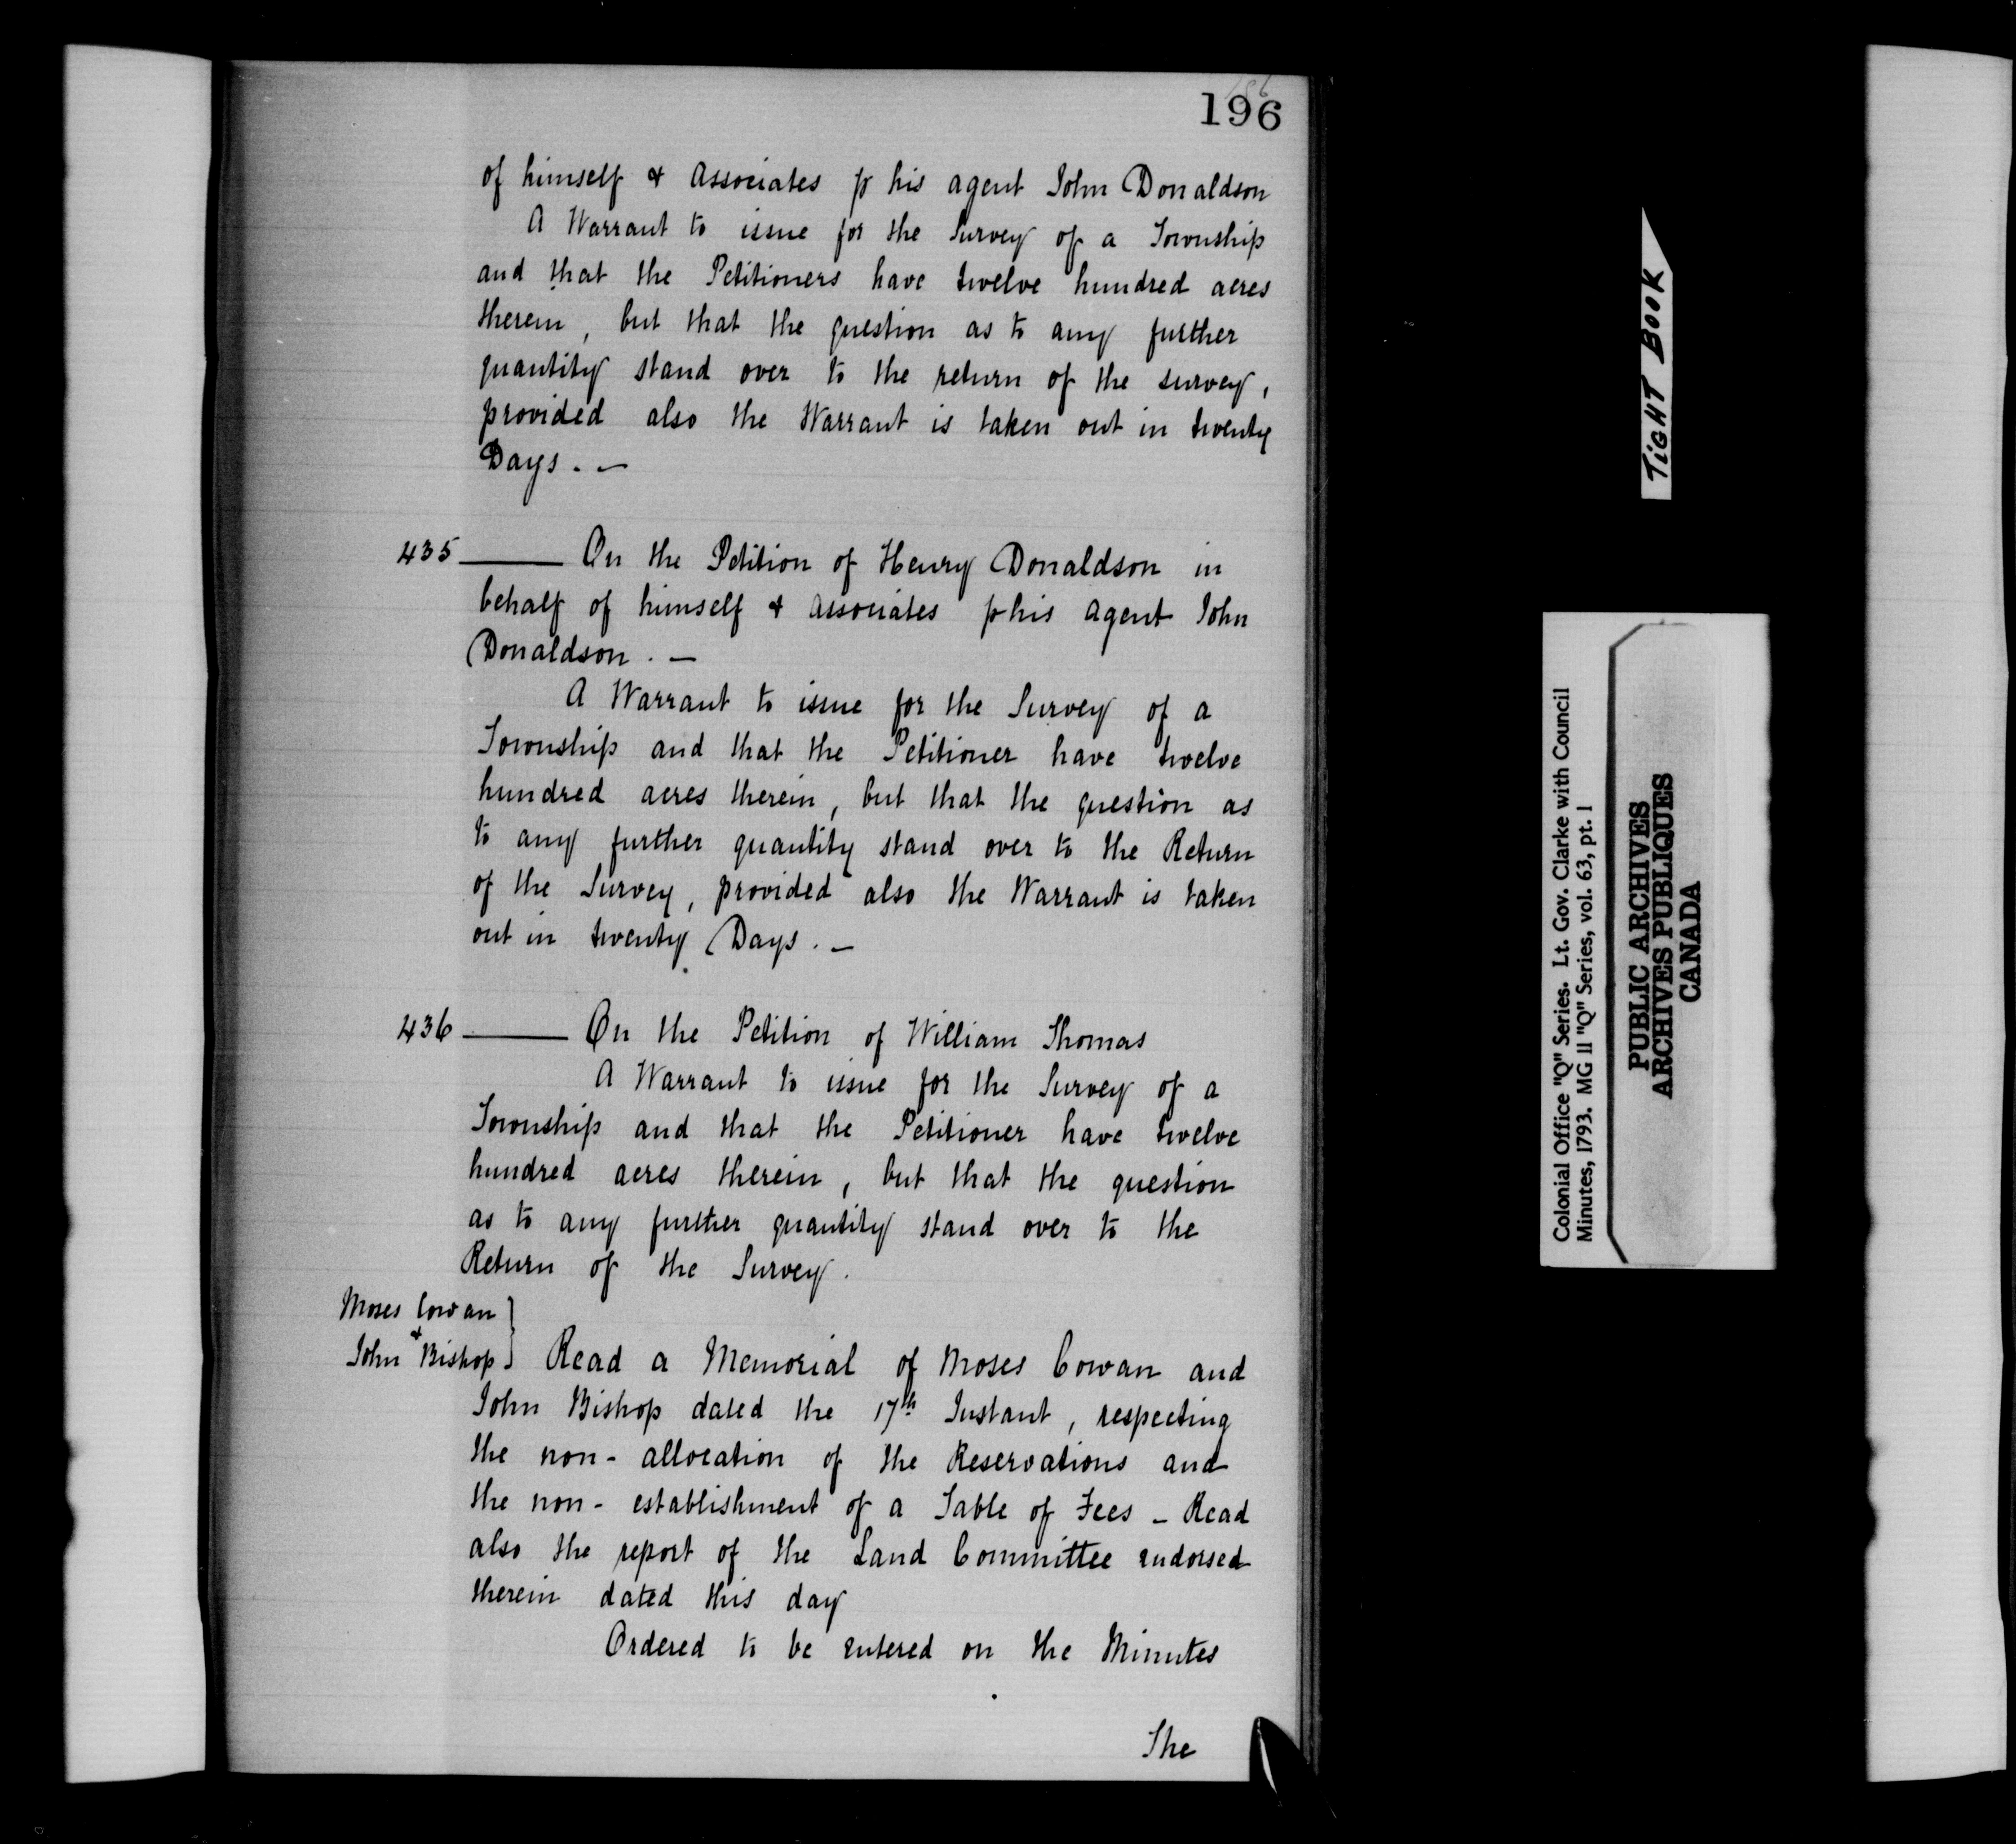 196
of himself & associates p his agent John Donaldson
A Warrant to issue for the Survey of a Township
and that the Petitioners have twelve hundred acres
therein, but that the question as to any further
quantity stand over to the return of the survey,
provided also the Warrant is taken out in twenty
Days. —
435 — On the Petition of Henry Donaldson in
behalf of himself & associates p his agent John
Donaldson. —
A Warrant to issue for the Survey of a
Township and that the Petitioner have twelve
hundred acres therein, but that the question as
to any further quantity stand over to the Return
of the Survey, provided also the Warrant is taken
out in twenty Days. —
436 — On the Petition of William Thomas
A Warrant to issue for the Survey of a
Township and that the Petitioner have twelve
hundred acres therein, but that the question
as to any further quantity stand over to the
Return of the Survey.
Moses Cowan
&
John Bishop } Read a Memorial of Moses Cowan and
John Bishop dated the 17th Instant, respecting
the non-allocation of the Reservations and
the non-establishment of a Table of Fees — Read
also the report of the Land Committee endorsed
therein dated this day
Ordered to be entered on the Minutes
The
TIGHT BOOK
Colonial Office "Q" Series. Lt. Gov. Clarke with Council
Minutes, 1793. MG 11 "Q" Series, vol. 63, pt. 1
PUBLIC ARCHIVES
ARCHIVES PUBLIQUES
CANADA